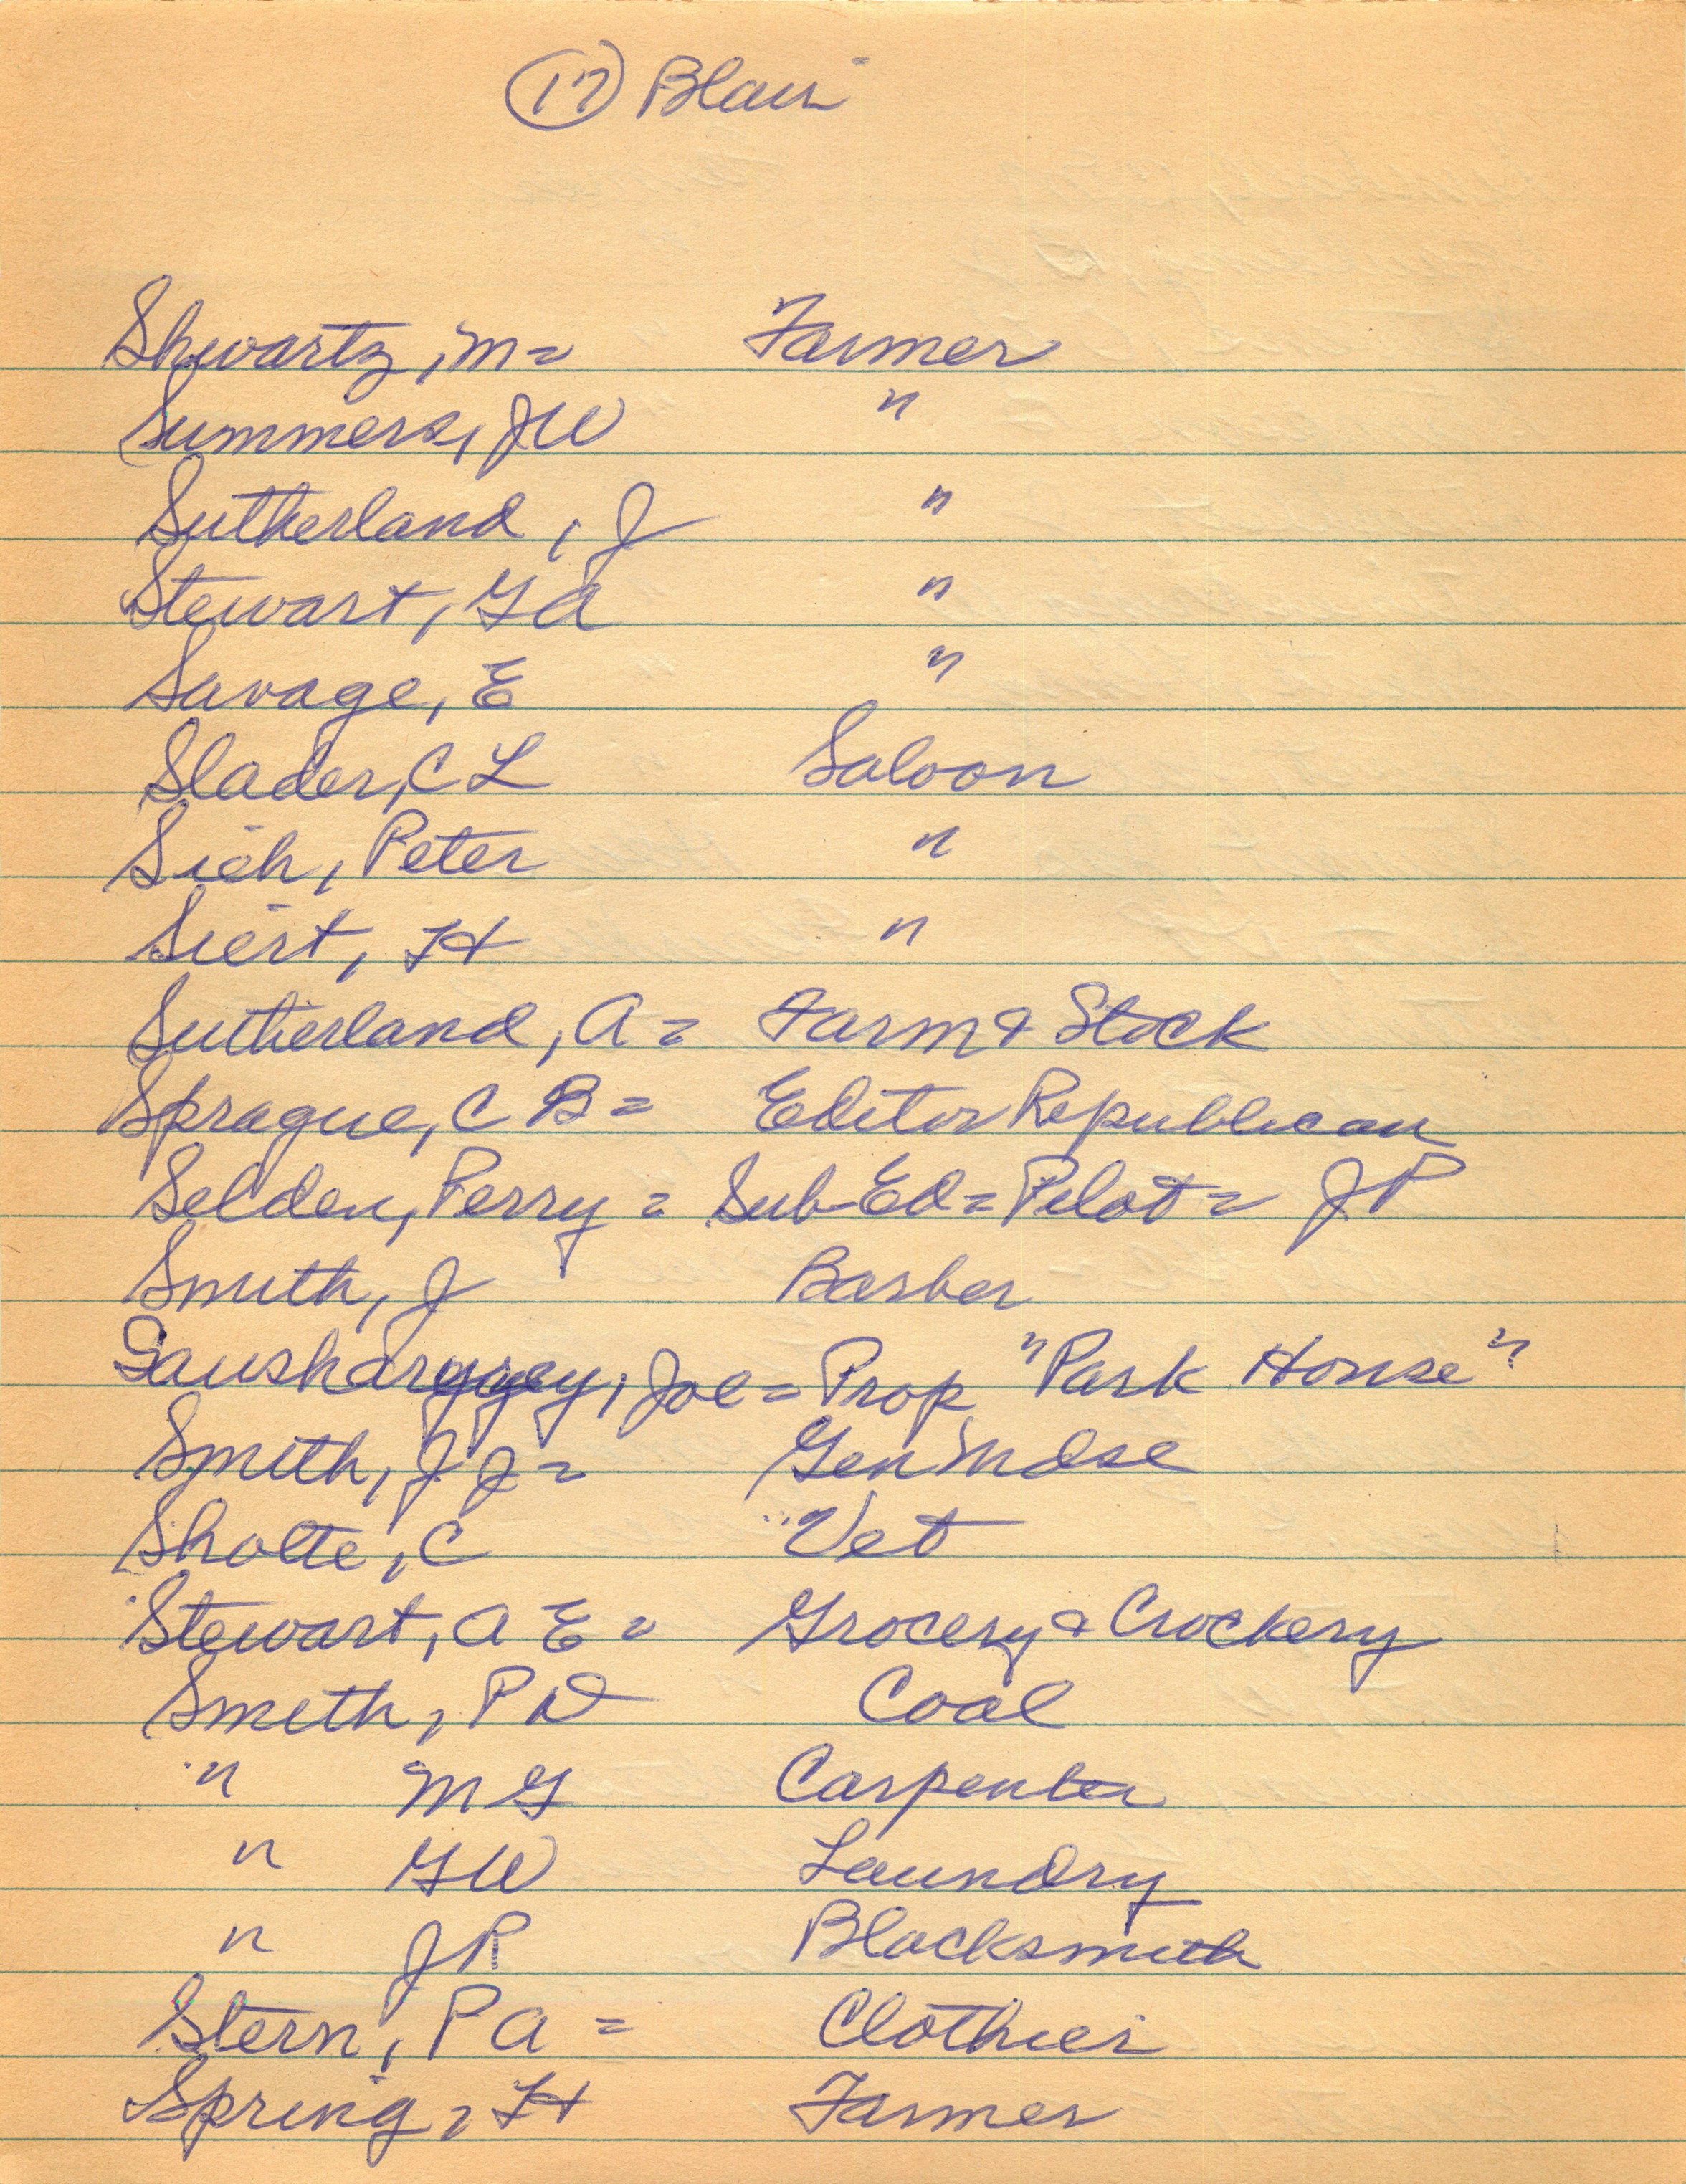 (17) Blair
Shwartz, M = Farmer
Summers, JW "
Sutherland, J "
Stewart, GA "
Savage, E "
Slader, C L Saloon
Sich, Peter "
Siert, H "
Sutherland, A = Farm & Stock
Sprague, C B = Editor Republican
Selden, Perry = Sub-Ed = Pilot = JP
Smith, J Barber
Joe = Prop "Park House"
Smith, J J = Gen Mdse
Sholte, C Vet
Stewart, A E = Grocery & Crockery
Smith, P D Coal
" M G Carpenter
" G W Laundry
" J R Blacksmith
Stern, P A = Clothier
Spring, H Farmer